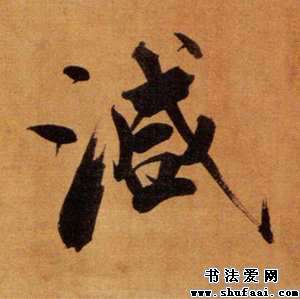 減
书法爱网
www.shufaai.com